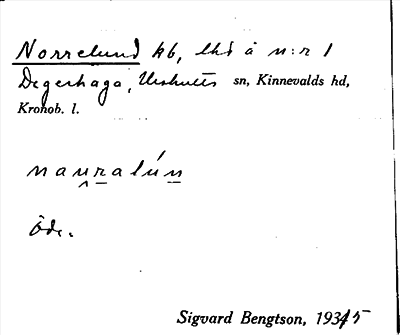 Norrelund hb, lhs å n:r 1
Degerhaga, Urshults sn, Kinnevalds hd,
Kronob. l.
nauralún
Öde.
Sigvard Bengtson, 1935